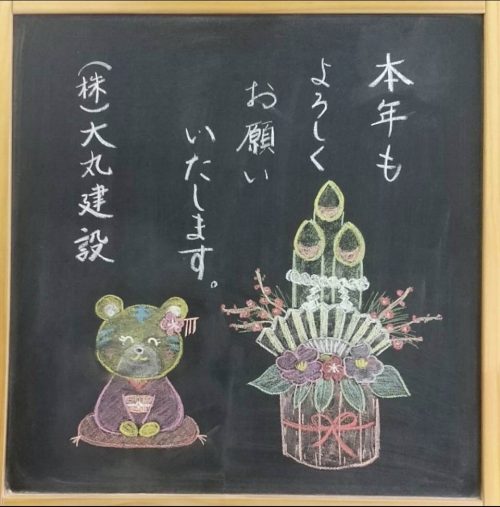 本年も
よろしく
お願い
いたします。
(株)大丸建設